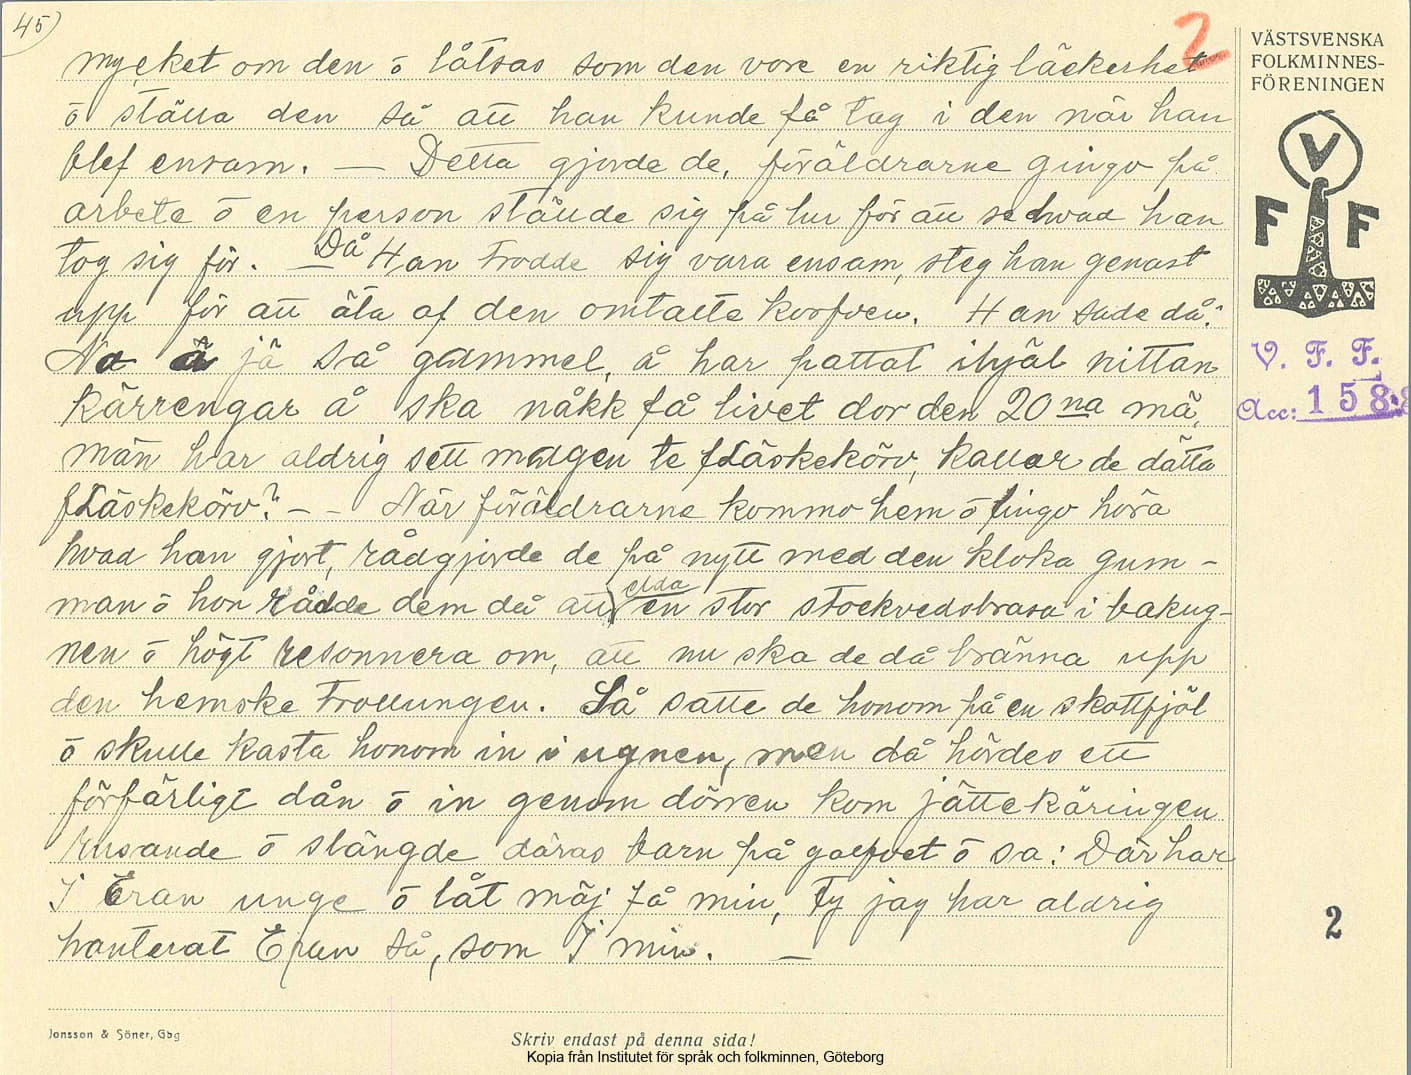 45)
2
mycket om den ō låtsas som den vore en riktig läckerhet
ō ställa den så att han kunde få tag i den när han
blef ensam. — Detta gjorde de, föräldrarne gingo på
arbete ō en person ställde sig på lur för att se hvad han
tog sig för. — Då Han trodde sig vara ensam, steg han genast
upp för att äta af den omtalte korfven. Han sade då:
Na ä jä så gammel, å har pattat ihjäl nittan
kärrengar å ska nåkk få livet dor den 20na mä,
män har aldrig sett magen te fläskekörv, kallar de dätta
fläskekörv? — – När föräldrarne kommo hem ō fingo höra
hvad han gjort, rådgjorde de på nytt med den kloka gum-
man ō hon rådde dem då att elda en stor stockvedsbrasa i bakug-
nen ō högt resonnera om, att nu ska de då bränna upp
den hemske Trollungen. Så satte de honom på en skottfjöl
ō skulle kasta honom in i ugnen, men då hördes ett
förfärligt dån ō in genom dörren kom jättekäringen
rusande ō slängde däras barn på golfvet ō sa: Där har
I Eran unge ō låt mäj få min, Ty jag har aldrig
hanterat Eran så, som I min. —
Jonsson & Söner, Gbg
Skriv endast på denna sida!
Kopia från Institutet för språk och folkminnen, Göteborg
VÄSTSVENSKA
FOLKMINNES-
FÖRENINGEN
V
F F
V. F. F.
Acc: 1588
2